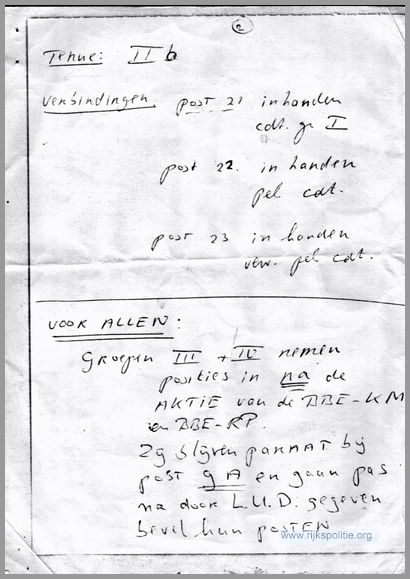 2
Tenue: II b
Verbindingen post 21 in handen
cdt. gr I
post 22. in handen
pel cdt.
post 23 in handen
verv. pel cdt.
VOOR ALLEN:
Groepen III + IV nemen
posities in na de
AKTIE van de BBE-KM
en BBE-RP.
Zij blijven paraat bij
post 9A en gaan pas
na door L.U.D. gegeven
bevel hun posten
www.rijkspolitie.org